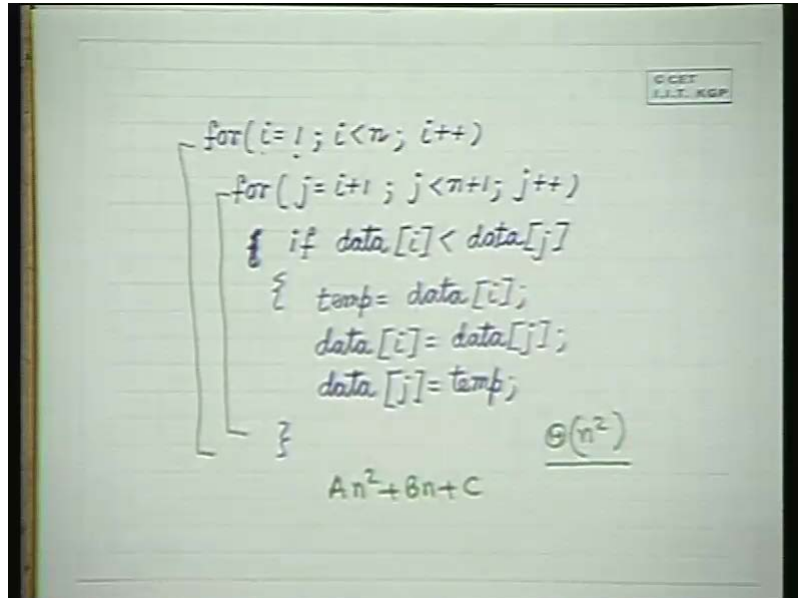 © CET
I.I.T. KGP
for(i=1; i<n; i++)
for(j=i+1; j<n+1; j++)
{ if data[i]<data[j]
{ temp=data[i];
data[i]=data[j];
data[j]=temp;
}
Θ(n²)
An²+Bn+C